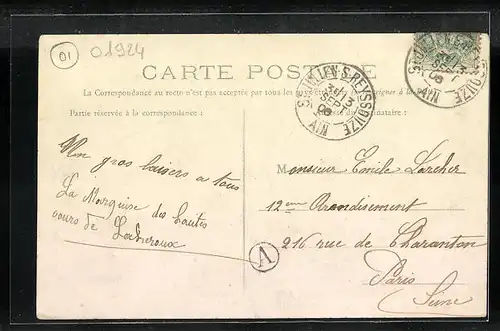 01
01924
CARTE POSTALE
La Correspondance au recto n'est pas acceptée par tous les pays
Partie réservée à la correspondance :
ST JULIEN-S-REYSSOUZE
13
SEPT
06
AIN
Un gros baisers a tous
La Marquise des hautes
cours de
Monsieur Emile Larcher
12ème Arondisement
216 rue de Charanton
Paris
Seine
A